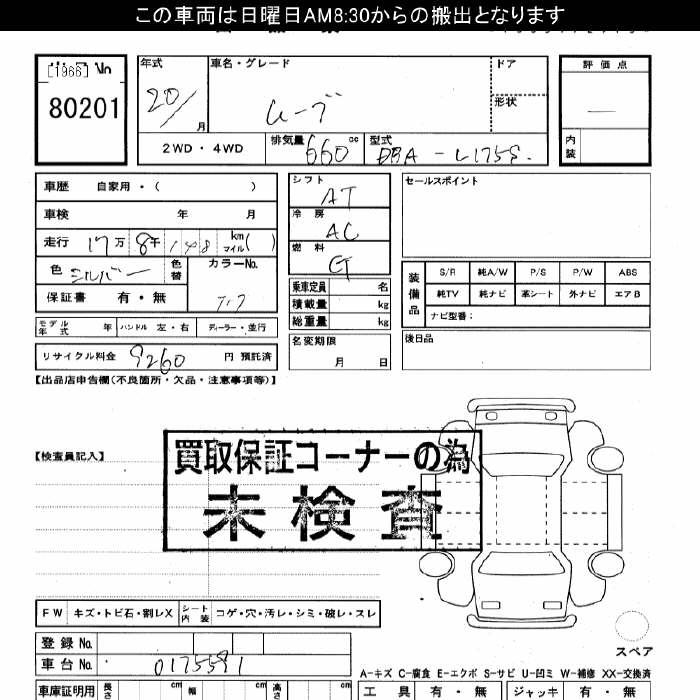 この車両は日曜日AM8:30からの搬出となります
[1966] No
80201
年式
20/
月
車名・グレード
ムーブ
ドア
形状
評価点
内装
2WD・4WD
排気量 660 cc
型式 DBA-L175S.
車歴 自家用・( )
車検 年 月
走行 17万 8千 148 km マイル( )
色 シルバー 色替
カラーNo.
保証書 有・無
シフト AT
冷房 AC
燃料 G
乗車定員 名
積載量 kg
総重量 kg
名変期限
月 日
セールスポイント
装備品
S/R 純A/W P/S P/W ABS
純TV 純ナビ 革シート 外ナビ エアB
ナビ型番:
後日品
モデル年式 年 ハンドル 左・右 ディーラー・並行
リサイクル料金 9260 円 預託済
【出品店申告欄(不良箇所・欠品・注意事項等)】
【検査員記入】
買取保証コーナーの為
未検査
FW キズ・トビ石・割レX シート内装 コゲ・穴・汚レ・シミ・破レ・スレ
登録No.
車台No. 0175591
スペア
A-キズ C-腐食 E-エクボ S-サビ U-凹ミ W-補修 XX-交換済
車庫証明用 長さ cm 幅 cm 高さ cm
工具 有・無 ジャッキ 有・無